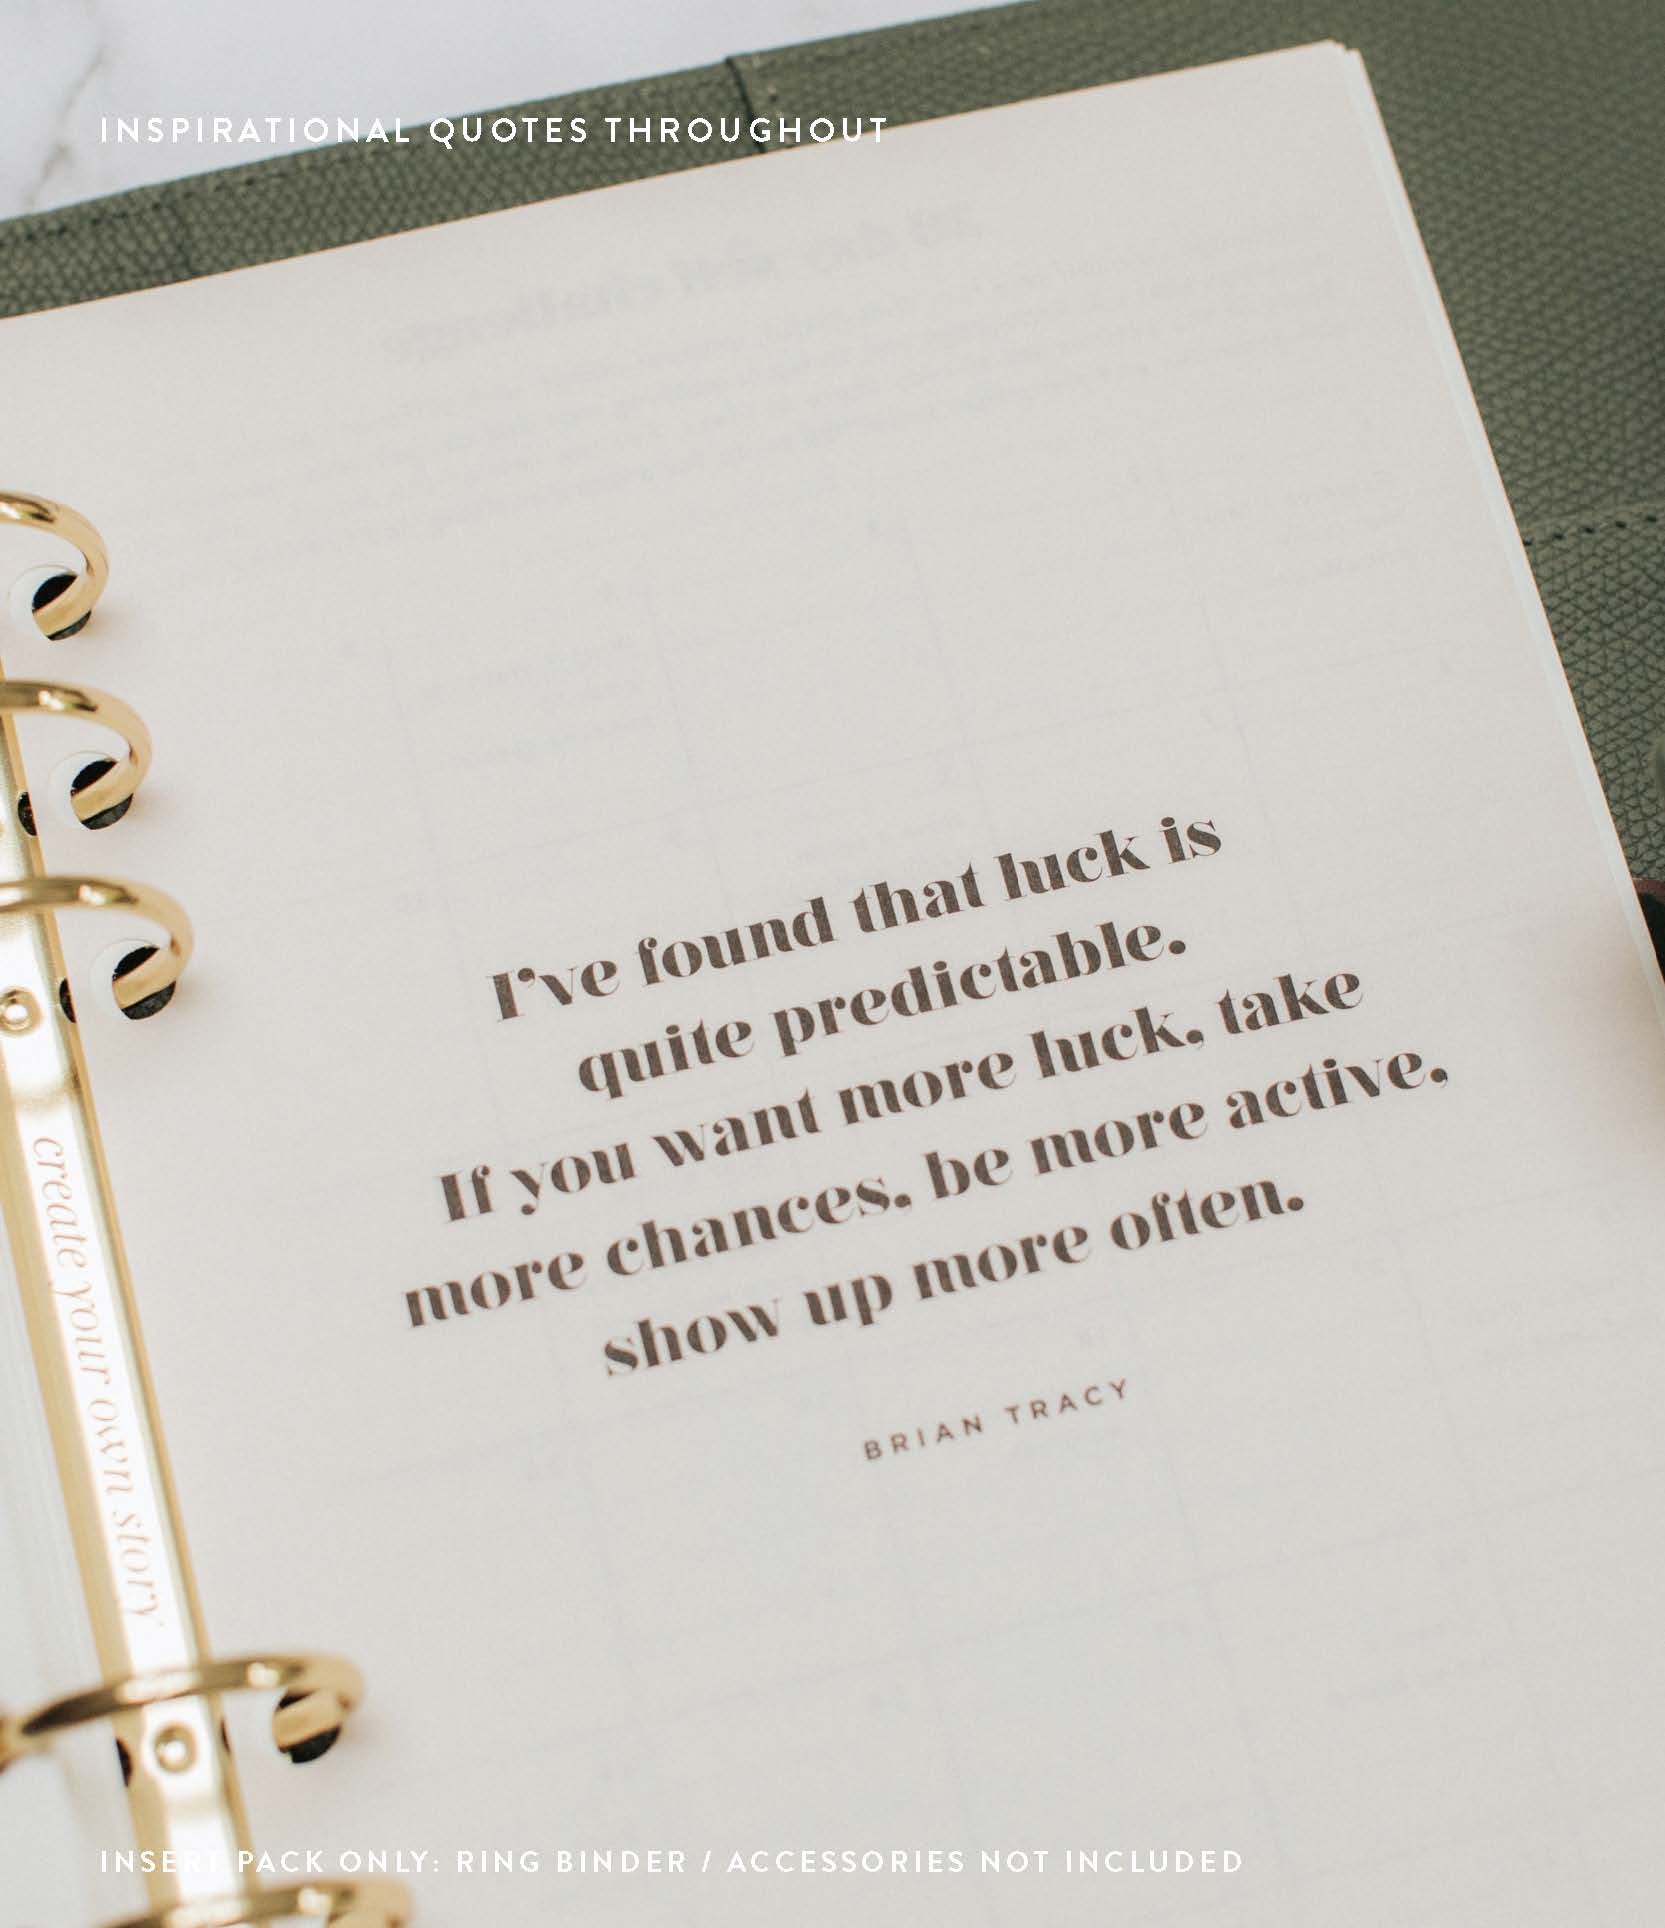 INSPIRATIONAL QUOTES THROUGHOUT
I've found that luck is
quite predictable.
If you want more luck, take
more chances, be more active,
show up more often.
BRIAN TRACY
create your own story
INSERT PACK ONLY: RING BINDER / ACCESSORIES NOT INCLUDED